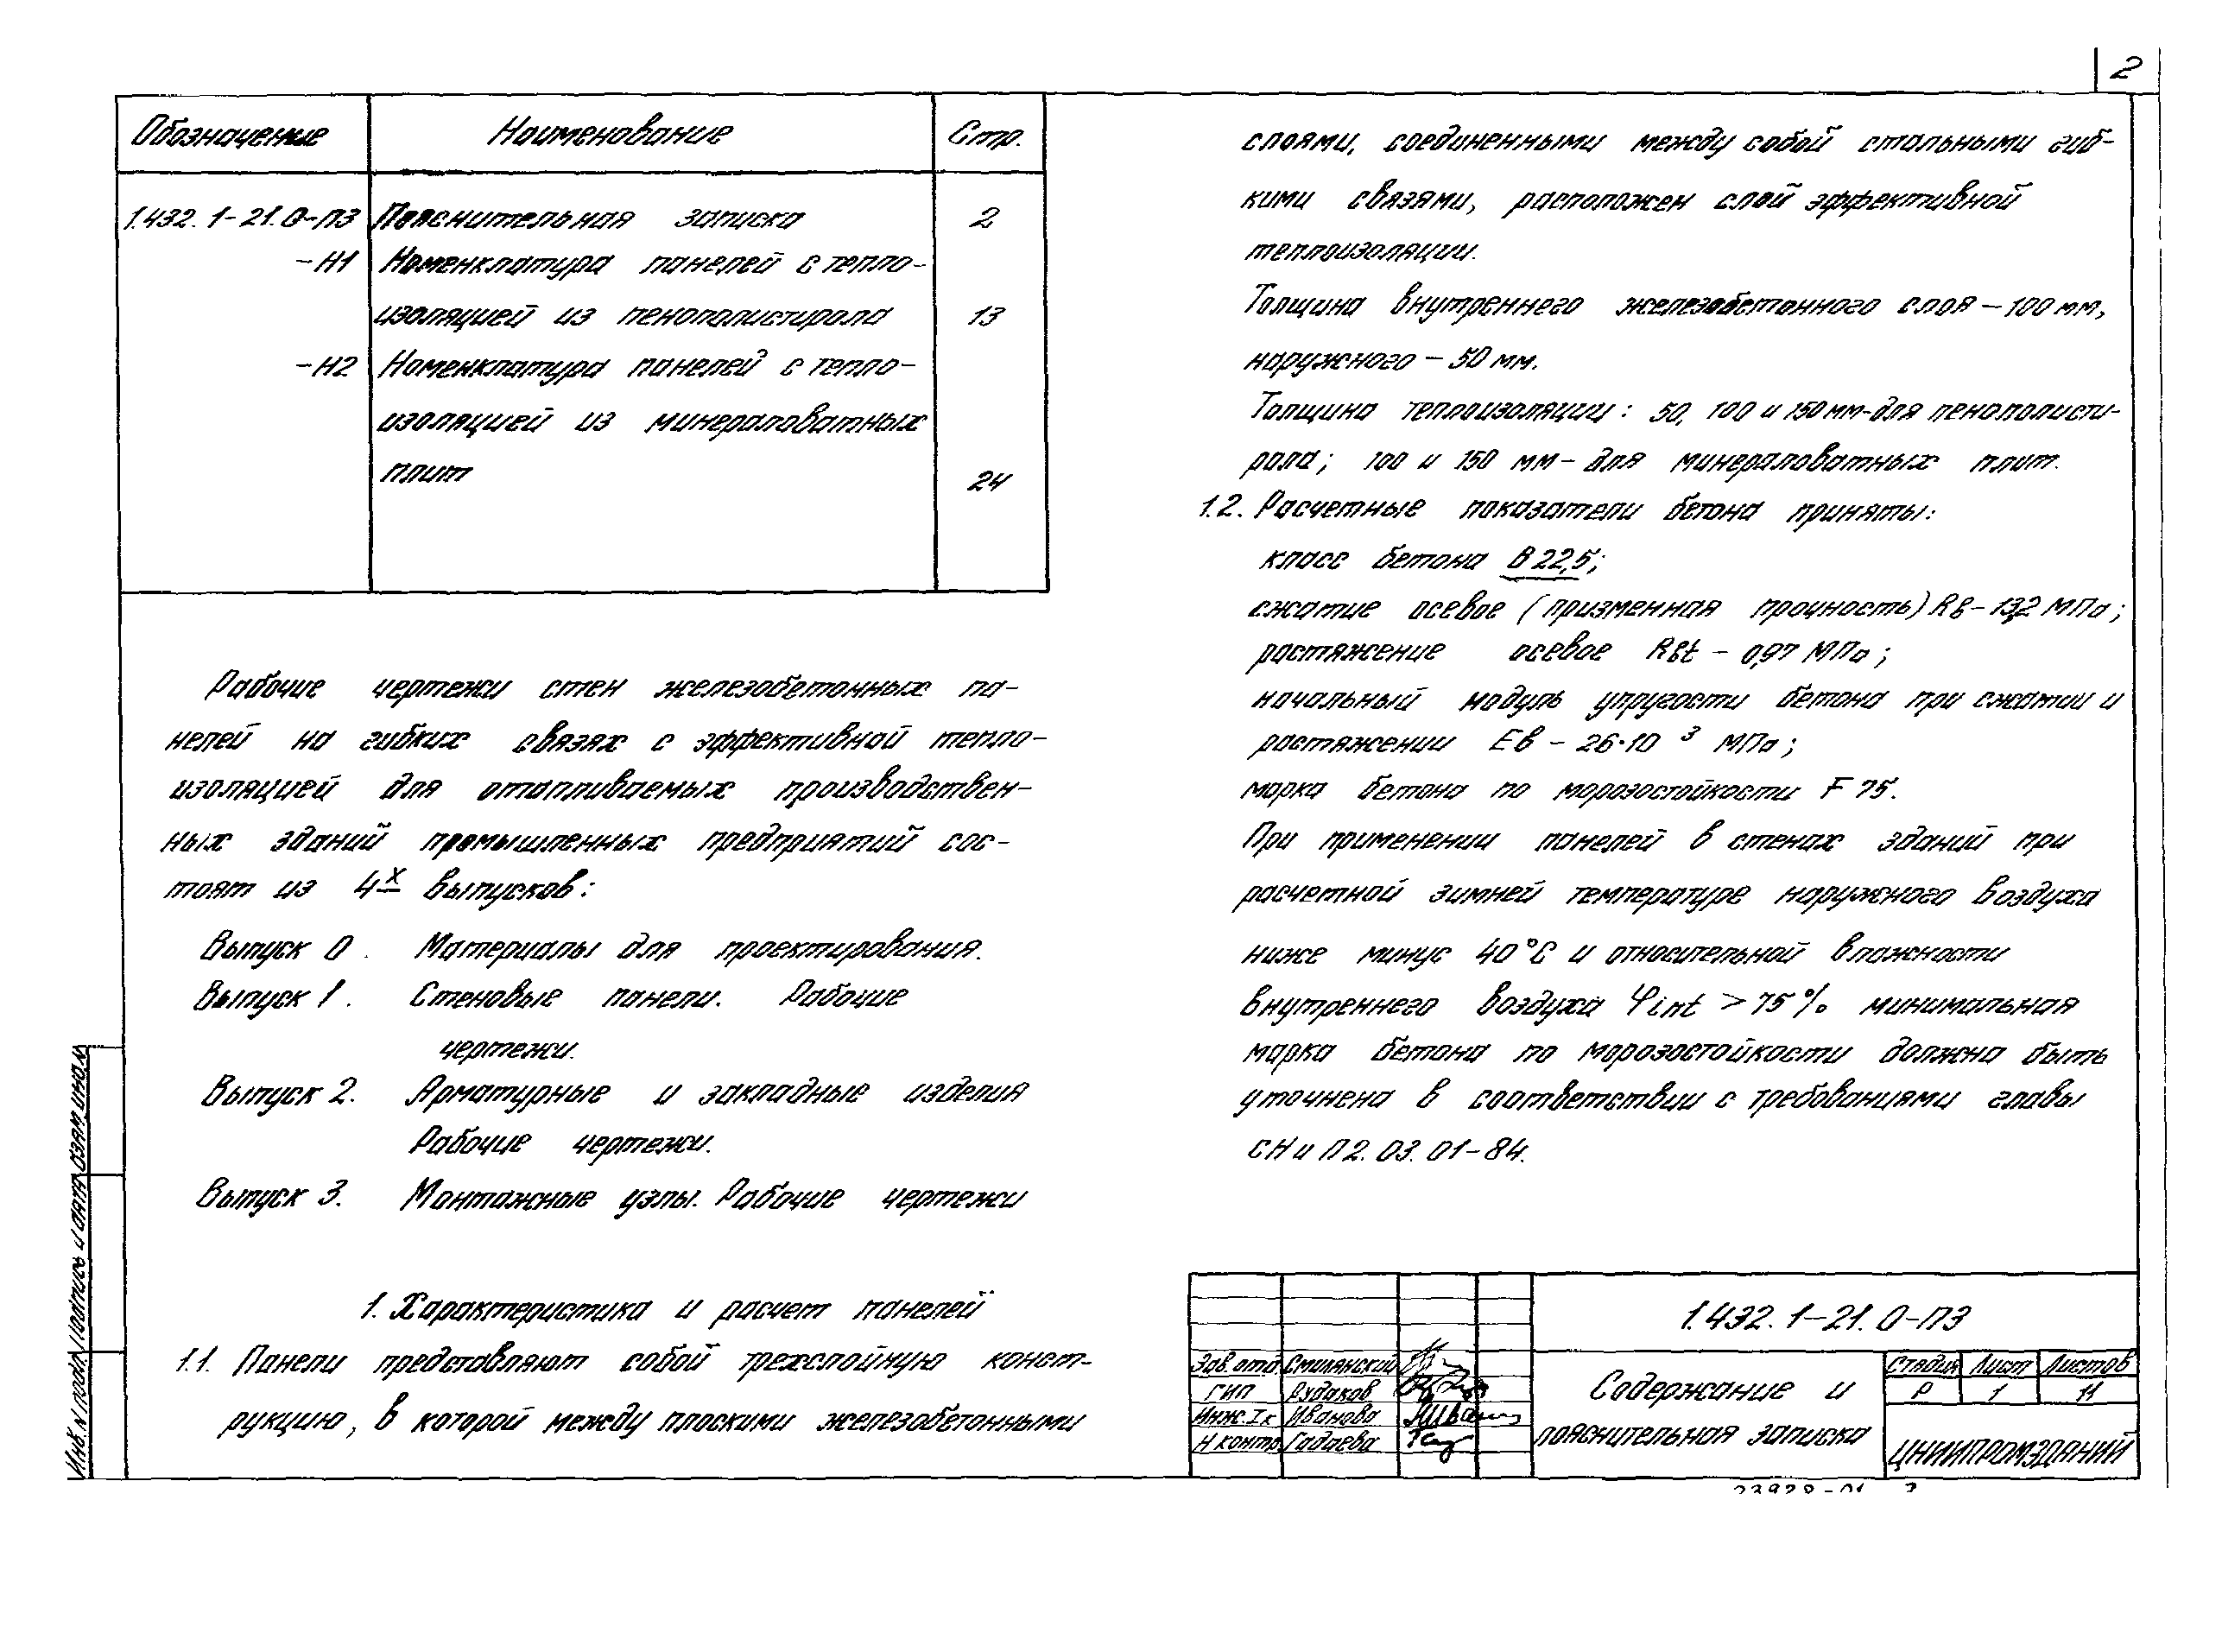 2
Обозначение Наименование Стр.
1.432.1-21.0-ПЗ Пояснительная записка 2
-Н1 Номенклатура панелей с тепло-
изоляцией из пенополистирола 13
-Н2 Номенклатура панелей с тепло-
изоляцией из минераловатных
плит 24
Рабочие чертежи стен железобетонных па-
нелей на гибких связях с эффективной тепло-
изоляцией для отапливаемых производствен-
ных зданий промышленных предприятий сос-
тоят из 4х выпусков:
Выпуск 0. Материалы для проектирования.
Выпуск 1. Стеновые панели. Рабочие
чертежи.
Выпуск 2. Арматурные и закладные изделия
Рабочие чертежи.
Выпуск 3. Монтажные узлы. Рабочие чертежи
1. Характеристика и расчет панелей
1.1. Панели представляют собой трехслойную конст-
рукцию, в которой между плоскими железобетонными
слоями, соединенными между собой стальными гиб-
кими связями, расположен слой эффективной
теплоизоляции.
Толщина внутреннего железобетонного слоя - 100 мм,
наружного - 50 мм.
Толщина теплоизоляции: 50, 100 и 150 мм - для пенополисти-
рола; 100 и 150 мм - для минераловатных плит.
1.2. Расчетные показатели бетона приняты:
класс бетона В 22,5;
сжатие осевое (призменная прочность) Rв - 13,2 МПа;
растяжение осевое Rвt - 0,97 МПа;
начальный модуль упругости бетона при сжатии и
растяжении Eв - 26·10 ³ МПа;
марка бетона по морозостойкости F 75.
При применении панелей в стенах зданий при
расчетной зимней температуре наружного воздуха
ниже минус 40°С и относительной влажности
внутреннего воздуха φint > 75% минимальная
марка бетона по морозостойкости должна быть
уточнена в соответствии с требованиями главы
СНиП 2.03.01-84.
Инв.N подл. Подпись и дата Взам.инв.N
1.432.1-21.0-ПЗ
Зав.отд. Смилянский
ГИП Рудаков
Инж.Iк Иванова
Н контр. Гадаева
Содержание и
пояснительная записка
Стадия Лист Листов
Р 1 11
ЦНИИПРОМЗДАНИЙ